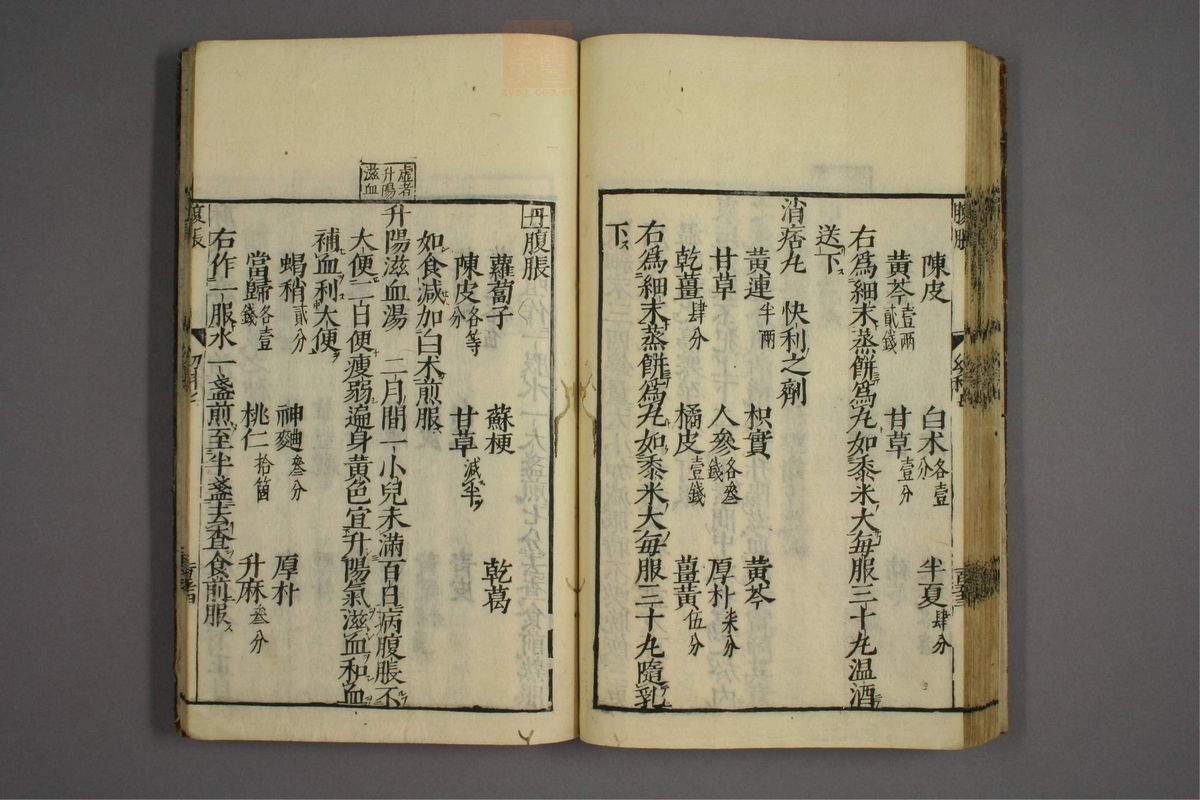 陳皮 白术各壹分 半夏肆分
黄芩壹兩貳錢 甘草壹分
右爲細末蒸餅爲丸如黍米大每服三十丸温酒
送下
消痞丸 快利之劑
黄連半兩 枳實 黄芩
甘草 人參各叄錢 厚朴柒分
乾薑肆分 橘皮壹錢 薑黄伍分
右爲細末蒸餅爲丸如黍米大每服三十丸隨乳
下
丹腹脹
蘿蔔子 蘇梗 乾葛
陳皮各等分 甘草減半
如食減加白术煎服
虛者升陽滋血
升陽滋血湯 二月間一小兒未滿百日病腹脹不
大便二日便瘦弱遍身黄色宜升陽氣滋血和血
補血利大便
蝎稍貳分 神麯叄分 厚朴
當歸各壹錢 桃仁拾箇 升麻叄分
右作一服水一盞煎至半盞去查食前服
腹脹